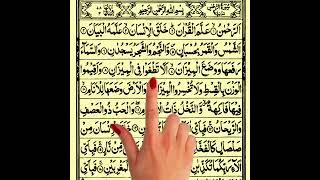 بِسْمِ اللّٰهِ الرَّحْمٰنِ الرَّحِيْمِ
اَلرَّحْمٰنُ ۝ عَلَّمَ الْقُرْاٰنَ ۝ خَلَقَ الْاِنْسَانَ ۝ عَلَّمَهُ الْبَيَانَ ۝
اَلشَّمْسُ وَالْقَمَرُ بِحُسْبَانٍ ۝ وَّالنَّجْمُ وَالشَّجَرُ يَسْجُدٰنِ ۝ وَالسَّمَآءَ
رَفَعَهَا وَوَضَعَ الْمِيْزَانَ ۝ اَلَّا تَطْغَوْا فِى الْمِيْزَانِ ۝ وَاَقِيْمُوا
الْوَزْنَ بِالْقِسْطِ وَلَا تُخْسِرُوا الْمِيْزَانَ ۝ وَالْاَرْضَ وَضَعَهَا لِلْاَنَامِ ۝
فِيْهَا فَاكِهَةٌ وَّالنَّخْلُ ذَاتُ الْاَكْمَامِ ۝ وَالْحَبُّ ذُو الْعَصْفِ
وَالرَّيْحَانُ ۝ فَبِاَيِّ الْاِنْسَانَ مِنْ
صَلْصَالٍ كَالْفَخَّارِ ۝ فَبِاَيِّ
اٰلَآءِ رَبِّكُمَا تُكَذِّبٰنِ ۝ الْمَغْرِبَيْنِ ۝ فَبِاَيِّ